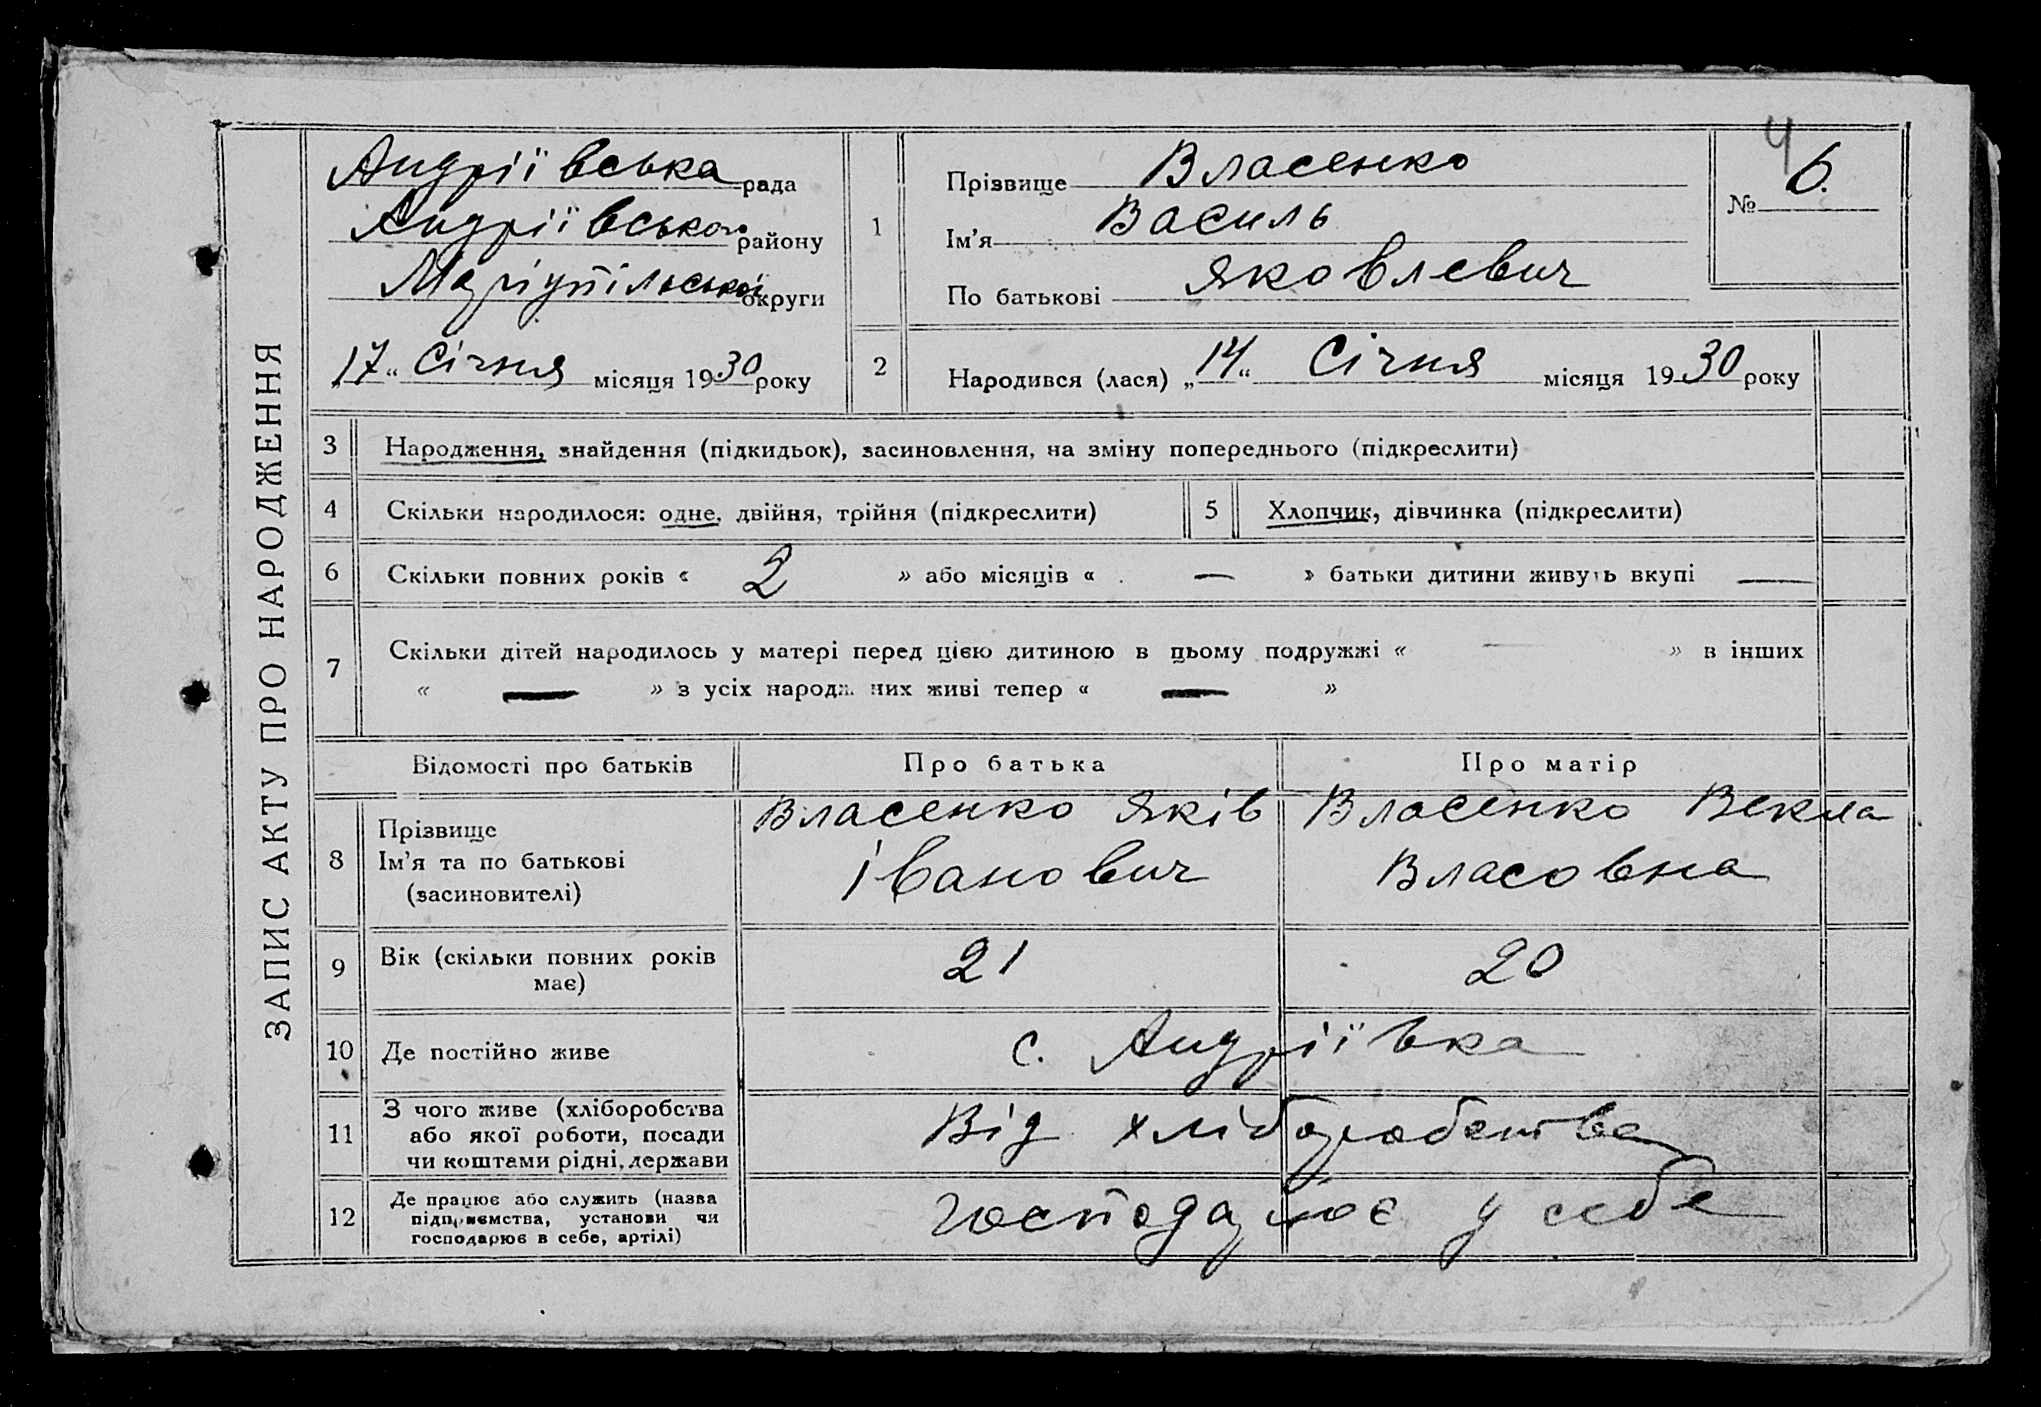 ЗАПИС АКТУ ПРО НАРОДЖЕННЯ
4
Андріївська рада
Андріївського району
Маріупільської округи
„17“ Січня місяця 1930 року
1
Прізвище Власенко
Ім'я Василь
По батькові Яковлевич
№ 6.
2
Народився (лася) „14“ Січня місяця 1930 року
3 Народження, знайдення (підкидьок), засиновлення, на зміну попереднього (підкреслити)
4 Скільки народилося: одне, двійня, трійня (підкреслити)
5 Хлопчик, дівчинка (підкреслити)
6 Скільки повних років « 2 » або місяців « — » батьки дитини живуть вкупі —
7 Скільки дітей народилось у матері перед цією дитиною в цьому подружжі « — » в інших
« — » з усіх народжених живі тепер « — »
Відомості про батьків Про батька Про матір
8 Прізвище
Ім'я та по батькові
(засиновителі)
Власенко Яків
Іванович
Власенко Векла
Власовна
9 Вік (скільки повних років
має)
21 20
10 Де постійно живе с. Андріївка
11 З чого живе (хліборобства
або якої роботи, посади
чи коштами рідні, держави
Від хліборобства
12 Де працює або служить (назва
підприємства, установи чи
господарює в себе, артілі)
господарює у себе